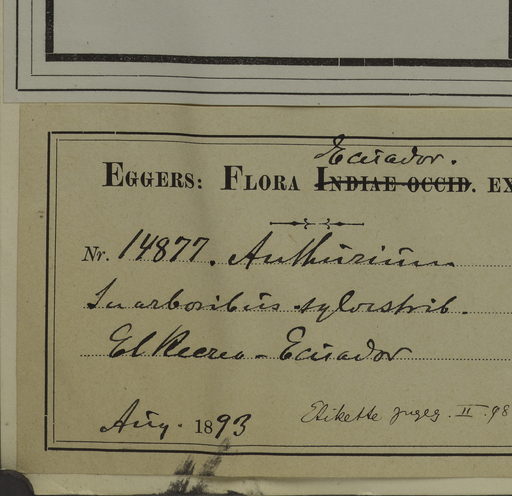 Ecuador.
EGGERS: FLORA INDIAE OCCID. EX
Nr. 14877. Anthurium
In arboribus sylvestrib.
El Recreo - Ecuador
Aug. 1893
Etikette zugeg. II. 98